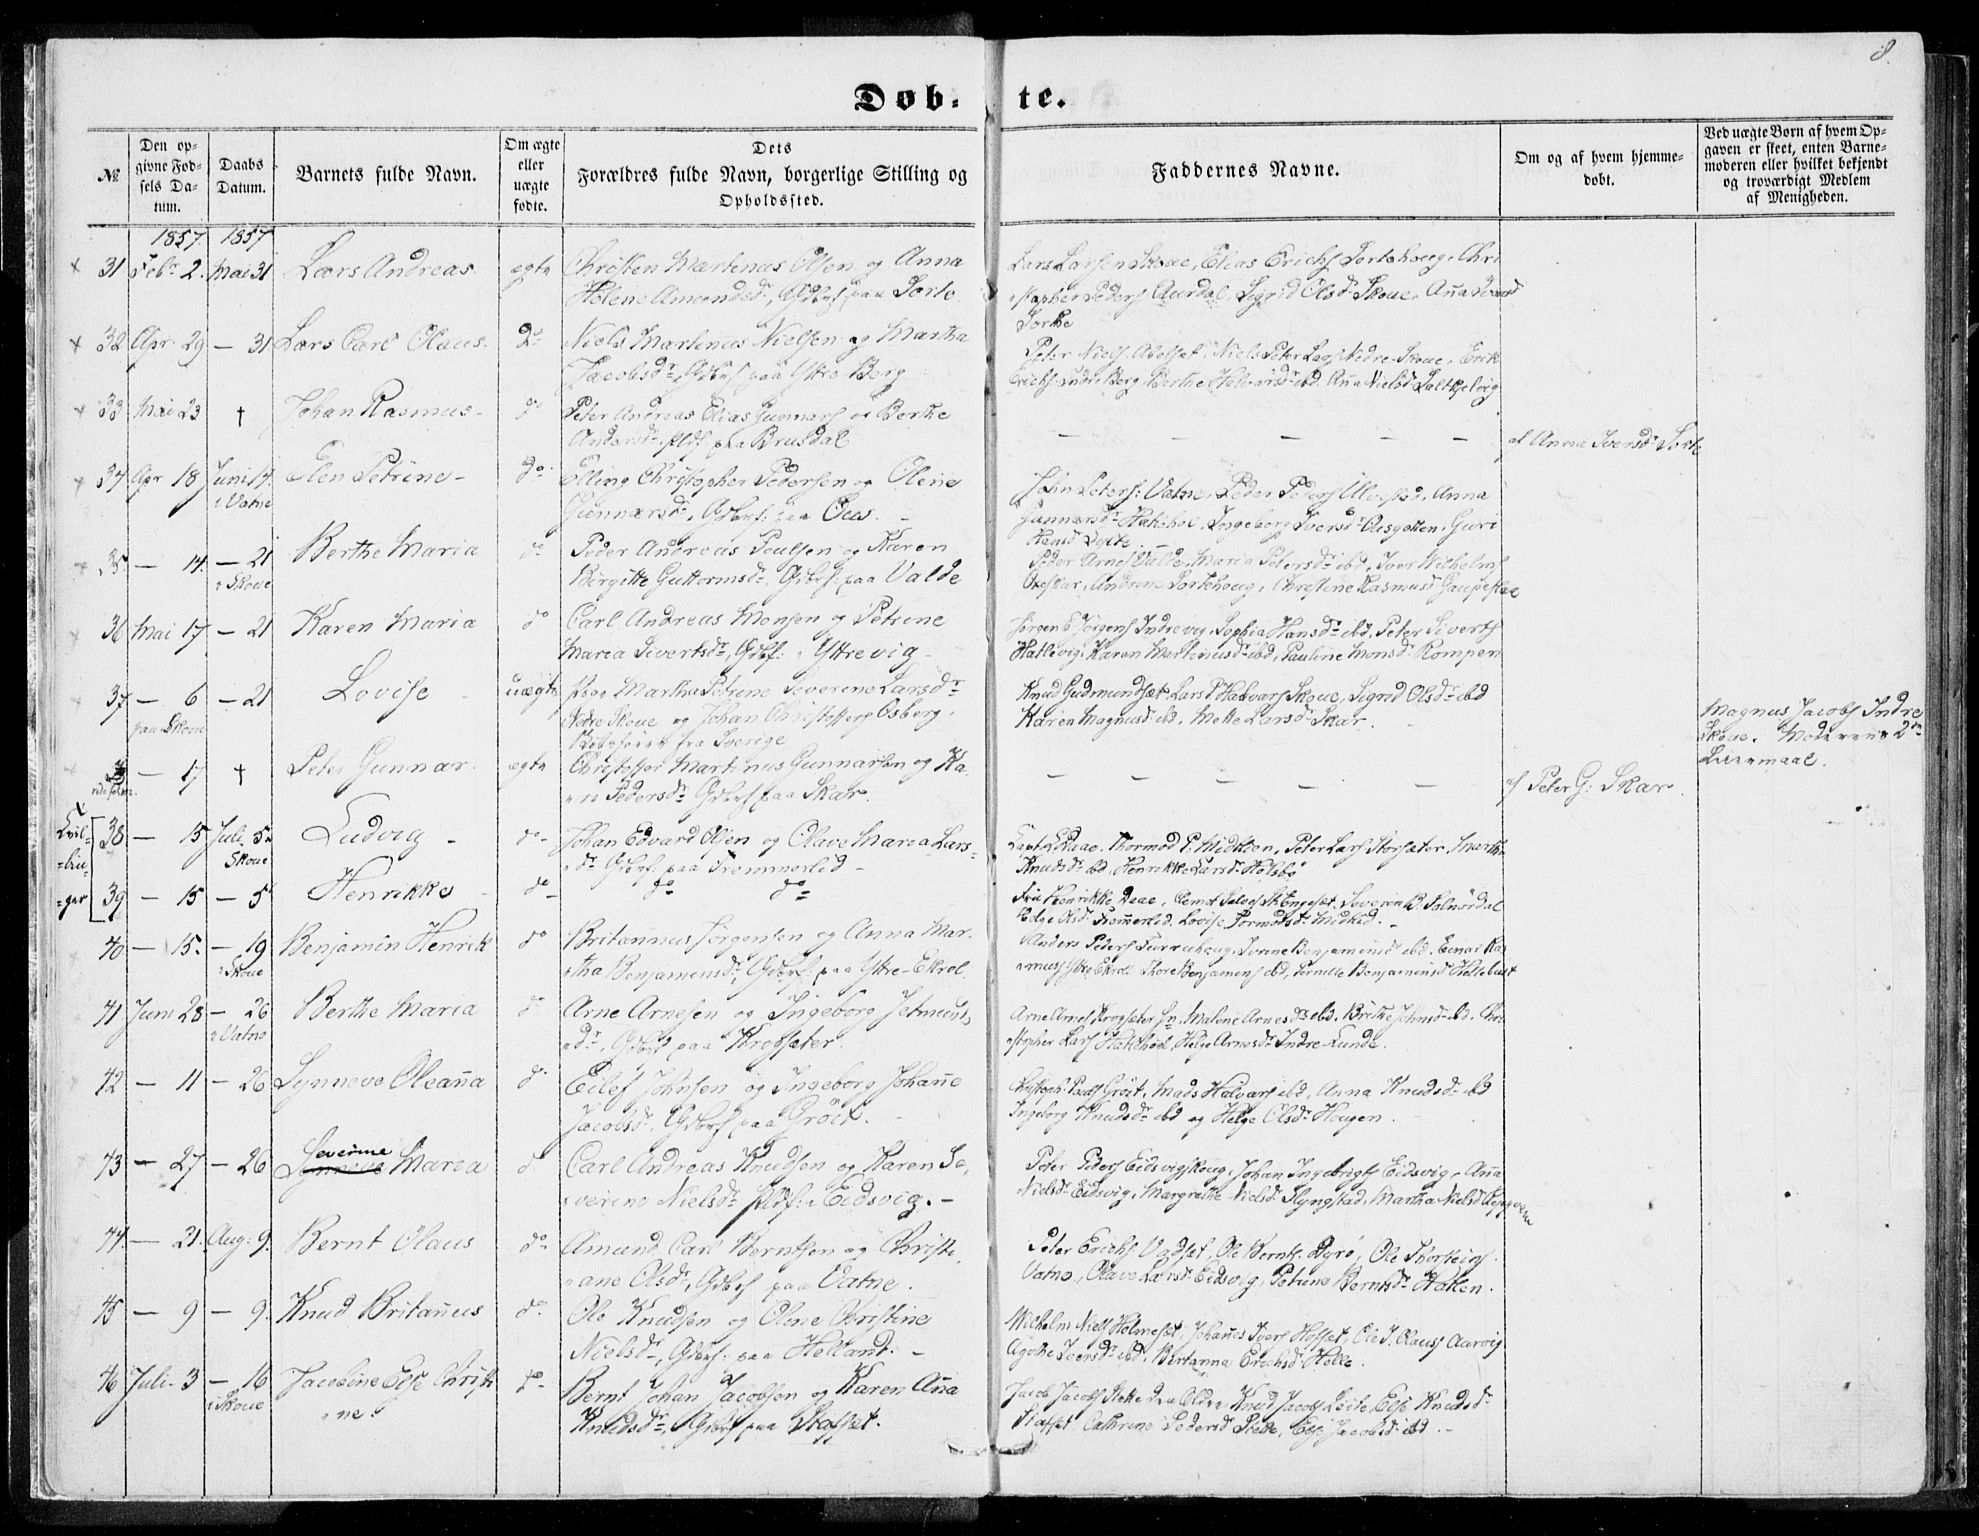 8.
Døb- te.
№
Den op-
givne Fød-
sels Da-
tum.
Daabs
Datum.
Barnets fulde Navn.
Om ægte
eller
uægte
fødte.
Dets
Forældres fulde Navn, borgerlige Stilling og
Opholdssted.
Faddernes Navne.
Om og af hvem hjemme-
døbt.
Ved uægte Børn af hvem Op-
gaven er skeet, enten Barne-
moderen eller hvilket bekjendt
og troværdigt Medlem
af Menigheden.
1857 1857
31 Febr 2. Mai 31 Lars Andreas ægte Christen Martinus Olsen og Anna
Helene Amundsdr, Gdbrf paa Sorte
Lars Larsen Skoue, Elias Erichs Sortehoug, Chri
stopher Peders Aurdal, Sigrid Olsdr Skoue, Anna
Sorte
32 Apr. 29 — 31 Lars Carl Olaus do Niels Martinus Nielsen og Martha
Jacobsdr, Gdbrf paa Ytre Berg
Peter Niels Abelset, Niels Peter Lars Nedre-Skoue, Erik
Erichs Indre Berg, Berthe Halvarsdr ibd. Anna Nielsd
33 Mai 23 † Johan Rasmus do Peter Andreas Elias Gunnars og Berthe
Andersdr, paa Brusdal
— — — — — af Anna Iversdr Sorte
34 Apr 18 Juni 14 Elen Petrine do Elling Christopher Pedersen og Oline
i Vatne
Gunnarsdr, Gdbrf: paa Ous.
John Peters: Vatne, Peder Peders Ulvestad, Anna
Gunnarsdr Hakehol, Ingeborg Iversdr Ousgotten, Guri
35 — 14 — 21 Berthe Maria do Peder Andreas Poulsen og Karen
i Skoue
Birgitte Guttormsdr, Gdbrf: paa Valde
Peder Arnes Valde, Maria Petersdr ibd, Iver Wilhelms
Oxeskar, Andrine Sortehoug, Christine Rasmusd
36 Mai 17 — 21 Karen Maria do Carl Andreas Monsen og Petrine
Maria Sivertsdr, Gdbf: i Yttrevig
Jørgen E Jørgens Indrevig, Sophia Hansdr ibd, Peter Siverts
Hatlevig, Karen Martinusdr ibd, Pauline Monsd: Rompen
37 — 6 — 21 Lovise uægte Pige Martha Petrine Severine Larsdr
paa Skoue
Nedre Skoue og Johan Christoffers Osberg,
fra Sverige
Knud Gudmundset, Lars P Halvars Skoue, Sigrid Olsdr ibd
Karen Magnusd ibd, Mette Larsdr Skar.
Magnus Jacobs Indre
Skoue. Moderens 2det
Leiermaal.
— 17 † Peter Gunnar ægte Christoffer Martinus Gunnarsen og Ka-
ren Pedersdr Gdbrf paa Skar.
— — — — — af Peter G: Skar.
Tvil-
-lin-
-ger
38 — 15 Juli 5 Ludvig do Johan Edvard Olsen og Olave Maria Lars-
Skoue
dr Gdbrf paa Fremmerlid
Capt. Daae, Thormod P. Midlien, Peter Lars Storsæter, Martha
Knudsdr ibd, Henrikke Larsdr Holsbø
39 — 15 — 5 Henrikke do do do
Fru Henrikke Daae, Severin B. Solnørdal
Olsd Fremmerlid, Lovise Tormodsd: Midlid.
40 — 15. — 19 Benjamin Henrik do Britannus Jørgensen og Anna Mar-
i Skoue
tha Benjaminsdr, Gdbrf: paa Ytre-Ekrol
Anders Peders Furuehoug, Benjaminsd ibd, Einar Ras
mus Ytre Ekroll Thore Benjamins ibd, Pernille Benjaminsd Hellebust
41 Juni 28 — 26 Berthe Maria do Arne Arnesen og Ingeborg Jetmunds
i Vatne
dr, Gdbrf paa Krogsæter.
Arne Arnes Krogsæter, Malene Arnesdr ibd. Britthe Johnsdr ibd, Chri
stopher Lars Hakehoel, Helge Arnesdr Indre-Lunde.
42 — 11 — 26 Synneve Oleanna do Eilef Johnsen og Ingeborg Johanne
Jacobsd, Gdbrf paa Grøit.
Christoph: Grøit, Mads Halvars ibd, Anna Knudsd ibd
Ingeborg Knudsdr ibd og Helge Olsdr Hougen
43 — 27 — 26 Severine Maria do Carl Andreas Knudsen og Karen Se-
verine Nielsdr i Eidsvig.
Peter Peders Eidsvigskoug, Johan Ingebrigts Eidsvig, Anna
Nielsd Eidsvig, Margrethe Nielsd Slyngstad, Martha Nielsd
44 — 21. Aug: 9. Bernt Olaus do Amund Carl Berntsen og Christi-
ane Olsdr, Gdbrf paa Vatne.
Peter Erichs Vadset, Ole Bernts. Dyrø, Ole Thorsteins.
Vatne, Olave Larsdr Eidsvig, Petrine Berntsdr Haken.
45 — 9 — 9. Knud Britannus do Ole Knudsen og Oline Christine
Nielsdr, Gdbrf: paa Helland.
Wilhelm Niels Holmeset, Johannes Ivers Hofset, Ole I. Olaus Aarvig
Agathe Iversdr ibd. Bertanna Erichsdr Helle.
46 Juli 3 — 16 Jacobine Else Christi do Bernt Johan Jacobsen og Karen Anna
i Skoue ne
Knudsdr, Gdbrf paa Stafset.
Jacob Jacobs Stette, Knud Jacobs Leite, Else Knudsdr
Stafset, Cathrine Pedersd Stette, Else Jacobsd ibd.